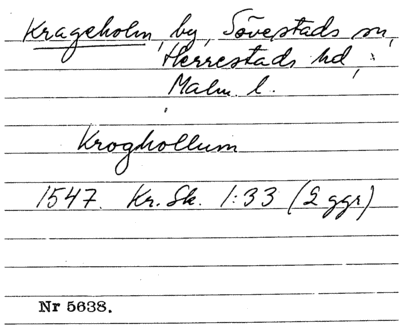 Krageholm, by, Sövestads sn,
Herrestads hd,
Malm. l.
Kroghollum
1547. Kr. Sk. 1:33 (2 ggr)
Nr 5638.